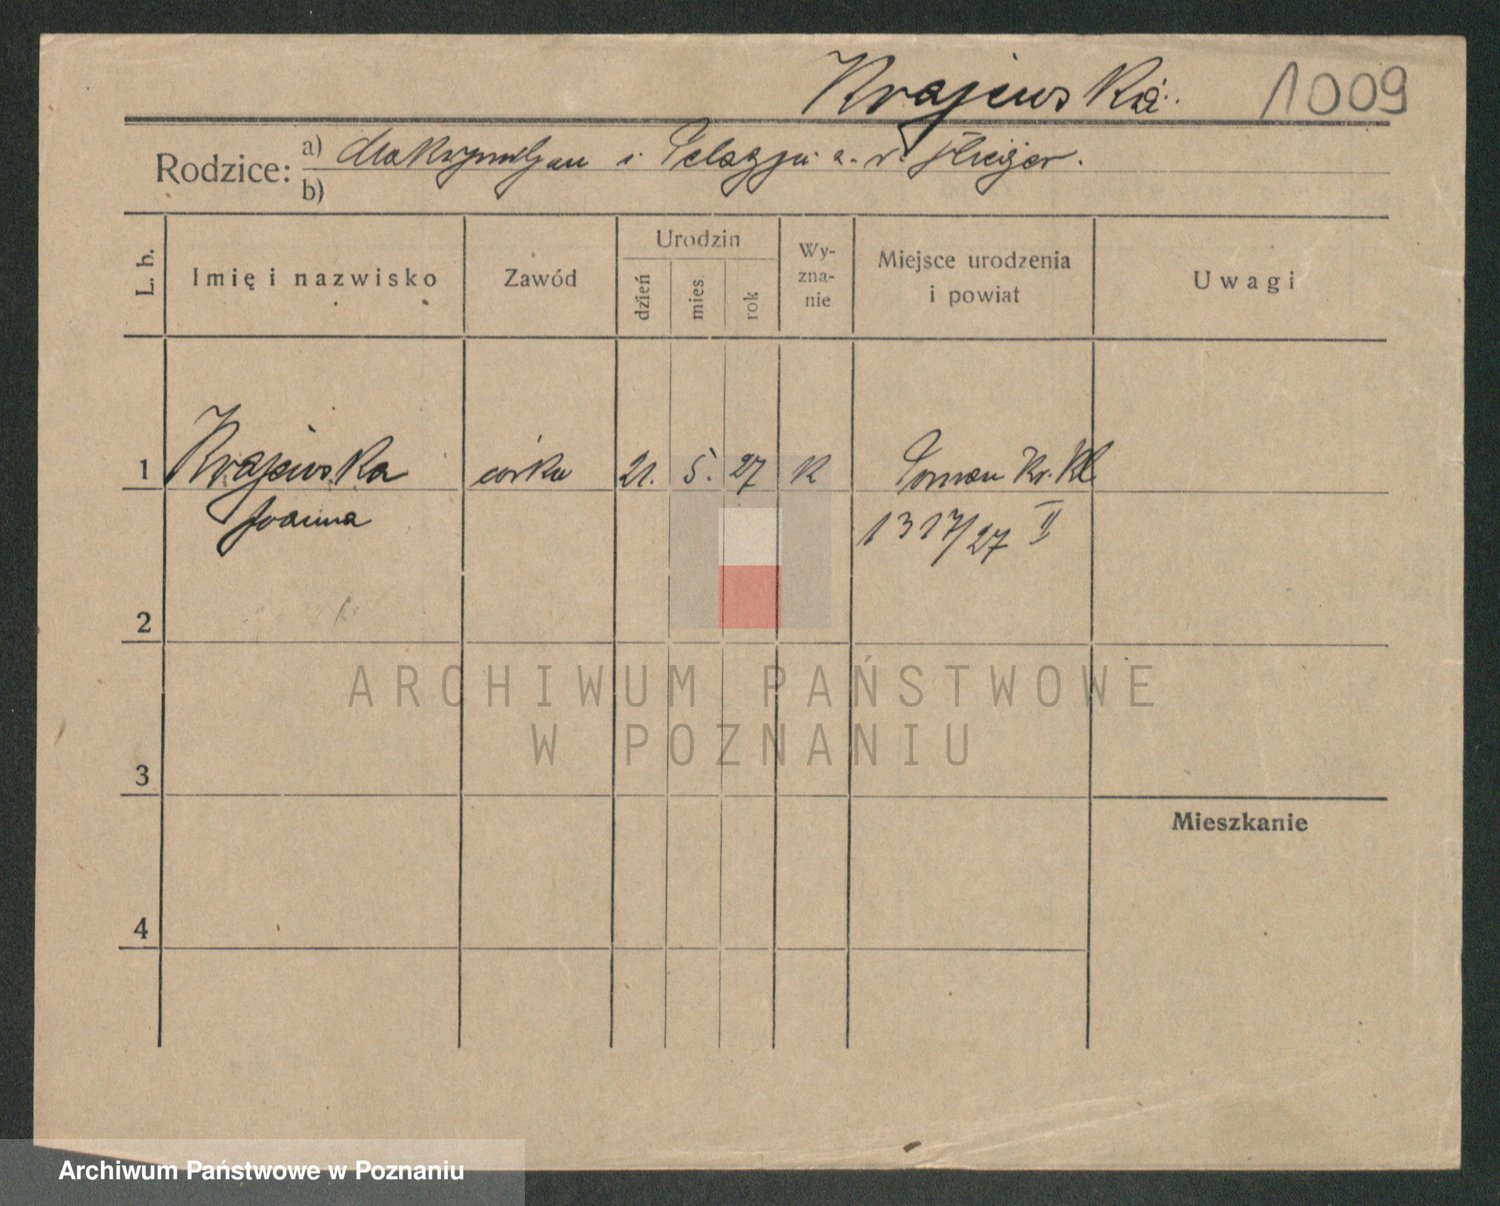 Krajewska. 1009
Rodzice: a) Maksymiljan i Pelagja
b)
L. b. Imię i nazwisko Zawód Urodzin dzień mies. rok Wy-zna-nie Miejsce urodzenia i powiat Uwagi
1 Krajewska córka 21. 5. 27 K
Joanna 1317/27 II
2
ARCHIWUM PAŃSTWOWE
W POZNANIU
3
Mieszkanie
4
Archiwum Państwowe w Poznaniu